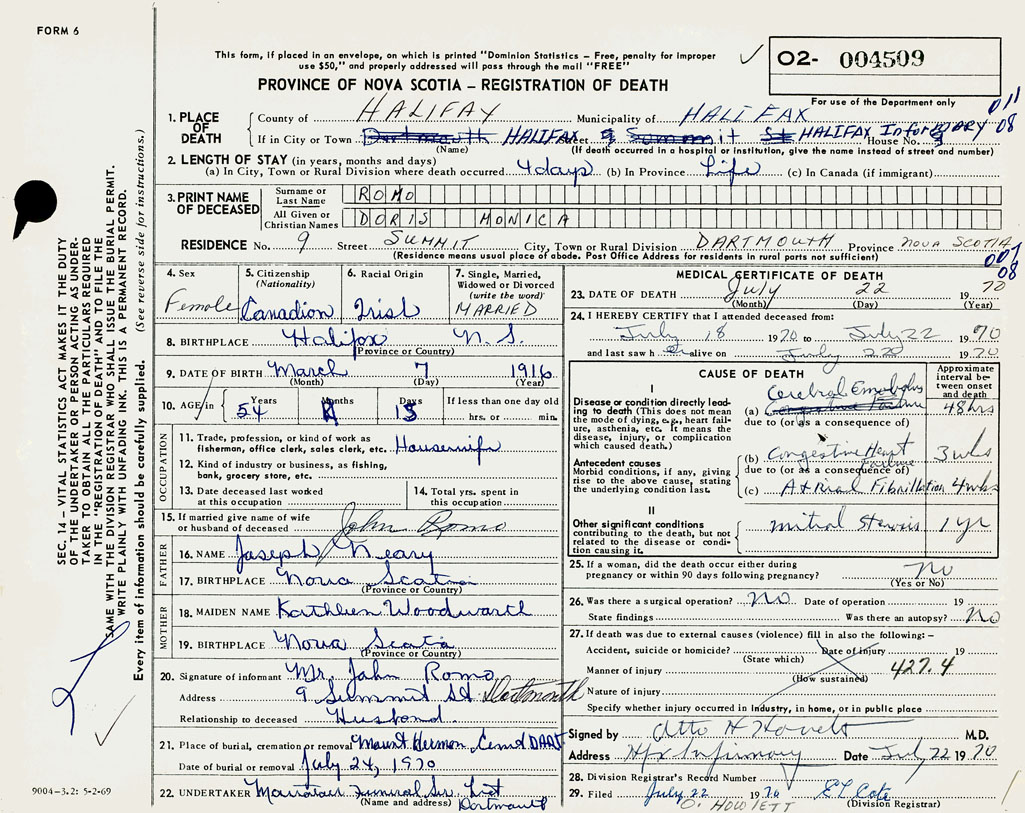 FORM 6
This form, if placed in an envelope, on which is printed "Dominion Statistics – Free, penalty for improper
use $50," and properly addressed will pass through the mail "FREE"
02- 004509
PROVINCE OF NOVA SCOTIA – REGISTRATION OF DEATH
For use of the Department only
011
08
1. PLACE OF DEATH
County of HALIFAX Municipality of HALIFAX
If in City or Town Dartmouth HALIFAX Street 9 Summit St HALIFAX Infirmary House No. 9
(Name) (If death occurred in a hospital or institution, give the name instead of street and number)
2. LENGTH OF STAY (in years, months and days)
(a) In City, Town or Rural Division where death occurred 4 days (b) In Province Life (c) In Canada (if immigrant)
3. PRINT NAME OF DECEASED
Surname or Last Name ROMO
All Given or Christian Names DORIS MONICA
RESIDENCE No. 9 Street SUMMIT City, Town or Rural Division DARTMOUTH Province NOVA SCOTIA
(Residence means usual place of abode. Post Office Address for residents in rural parts not sufficient)
007
08
4. Sex Female
5. Citizenship (Nationality) Canadian
6. Racial Origin Irish
7. Single, Married, Widowed or Divorced (write the word) MARRIED
8. BIRTHPLACE Halifax N.S.
(Province or Country)
9. DATE OF BIRTH March 7 1916
(Month) (Day) (Year)
10. AGE in Years 54 Months 4 Days 15 If less than one day old
hrs. or min.
OCCUPATION
11. Trade, profession, or kind of work as
fisherman, office clerk, sales clerk, etc. Housewife
12. Kind of industry or business, as fishing,
bank, grocery store, etc.
13. Date deceased last worked
at this occupation
14. Total yrs. spent in
this occupation
15. If married give name of wife
or husband of deceased John Romo
FATHER
16. NAME Joseph Neary
17. BIRTHPLACE Nova Scotia
(Province or Country)
MOTHER
18. MAIDEN NAME Kathleen Woodwarth
19. BIRTHPLACE Nova Scotia
(Province or Country)
20. Signature of informant Mr. John Romo
Address 9 Summit St Dartmouth
Relationship to deceased Husband
21. Place of burial, cremation or removal Mount Hermon Cem DART
Date of burial or removal July 24, 1970
22. UNDERTAKER Funeral Ser. Ltd
(Name and address) Dartmouth
MEDICAL CERTIFICATE OF DEATH
23. DATE OF DEATH July 22 1970
(Month) (Day) (Year)
24. I HEREBY CERTIFY that I attended deceased from:
July 18 1970 to July 22 1970
and last saw her alive on July 22 1970
CAUSE OF DEATH
Approximate interval between onset and death
I
Disease or condition directly leading to death (This does not mean the mode of dying, e.g., heart failure, asthenia, etc. It means the disease, injury, or complication which caused death.)
Cerebral Embolus
(a) Congestive Failure 48 hrs
due to (or as a consequence of)
Antecedent causes
Morbid conditions, if any, giving rise to the above cause, stating the underlying condition last.
(b) Congestive Heart Failure 3 wks
due to (or as a consequence of)
(c) Atrial Fibrillation 4 wks
II
Other significant conditions contributing to the death, but not related to the disease or condition causing it.
Mitral Stenosis 1 yr
25. If a woman, did the death occur either during
pregnancy or within 90 days following pregnancy? No
(Yes or No)
26. Was there a surgical operation? No Date of operation 19
State findings Was there an autopsy? No
27. If death was due to external causes (violence) fill in also the following:–
Accident, suicide or homicide? Date of injury 19
(State which)
Manner of injury 427.4
(How sustained)
Nature of injury
Specify whether injury occurred in industry, in home, or in public place
Signed by Otto H Howlett M.D.
Address Hfx Infirmary Date July 22 1970
28. Division Registrar's Record Number
29. Filed July 22 1970 EL Cote
O. HOWLETT (Division Registrar)
SEC. 14 – VITAL STATISTICS ACT MAKES IT THE DUTY
OF THE UNDERTAKER OR PERSON ACTING AS UNDER-
TAKER TO OBTAIN ALL THE PARTICULARS REQUIRED
IN THE "REGISTRATION OF DEATH" AND TO FILE THE
SAME WITH THE DIVISION REGISTRAR WHO SHALL ISSUE THE BURIAL PERMIT.
WRITE PLAINLY WITH UNFADING INK. THIS IS A PERMANENT RECORD.
Every item of information should be carefully supplied. (See reverse side for instructions.)
9004-3.2: 5-2-69